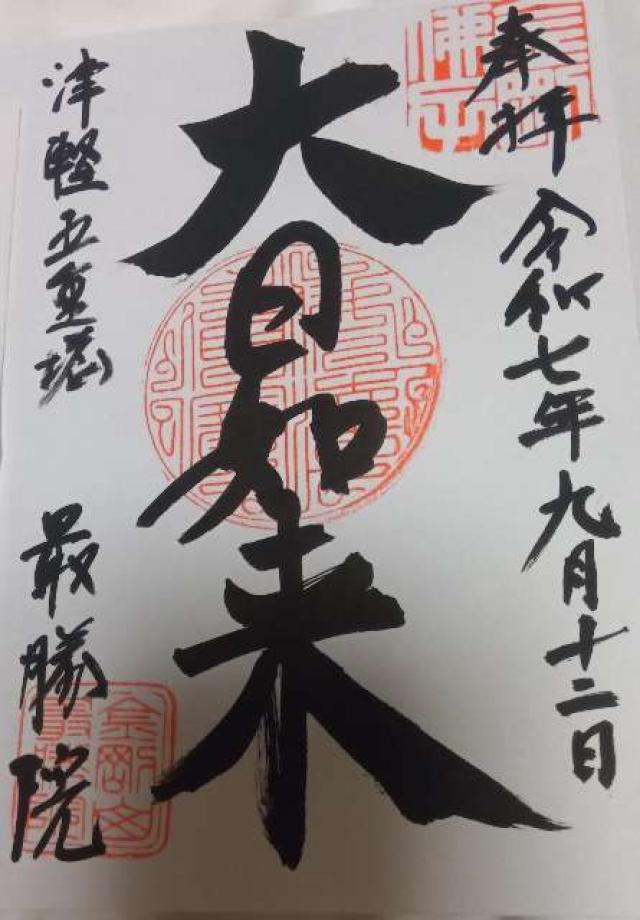 奉拝 令和七年九月十二日
大日如来
津軽五重塔 最勝院